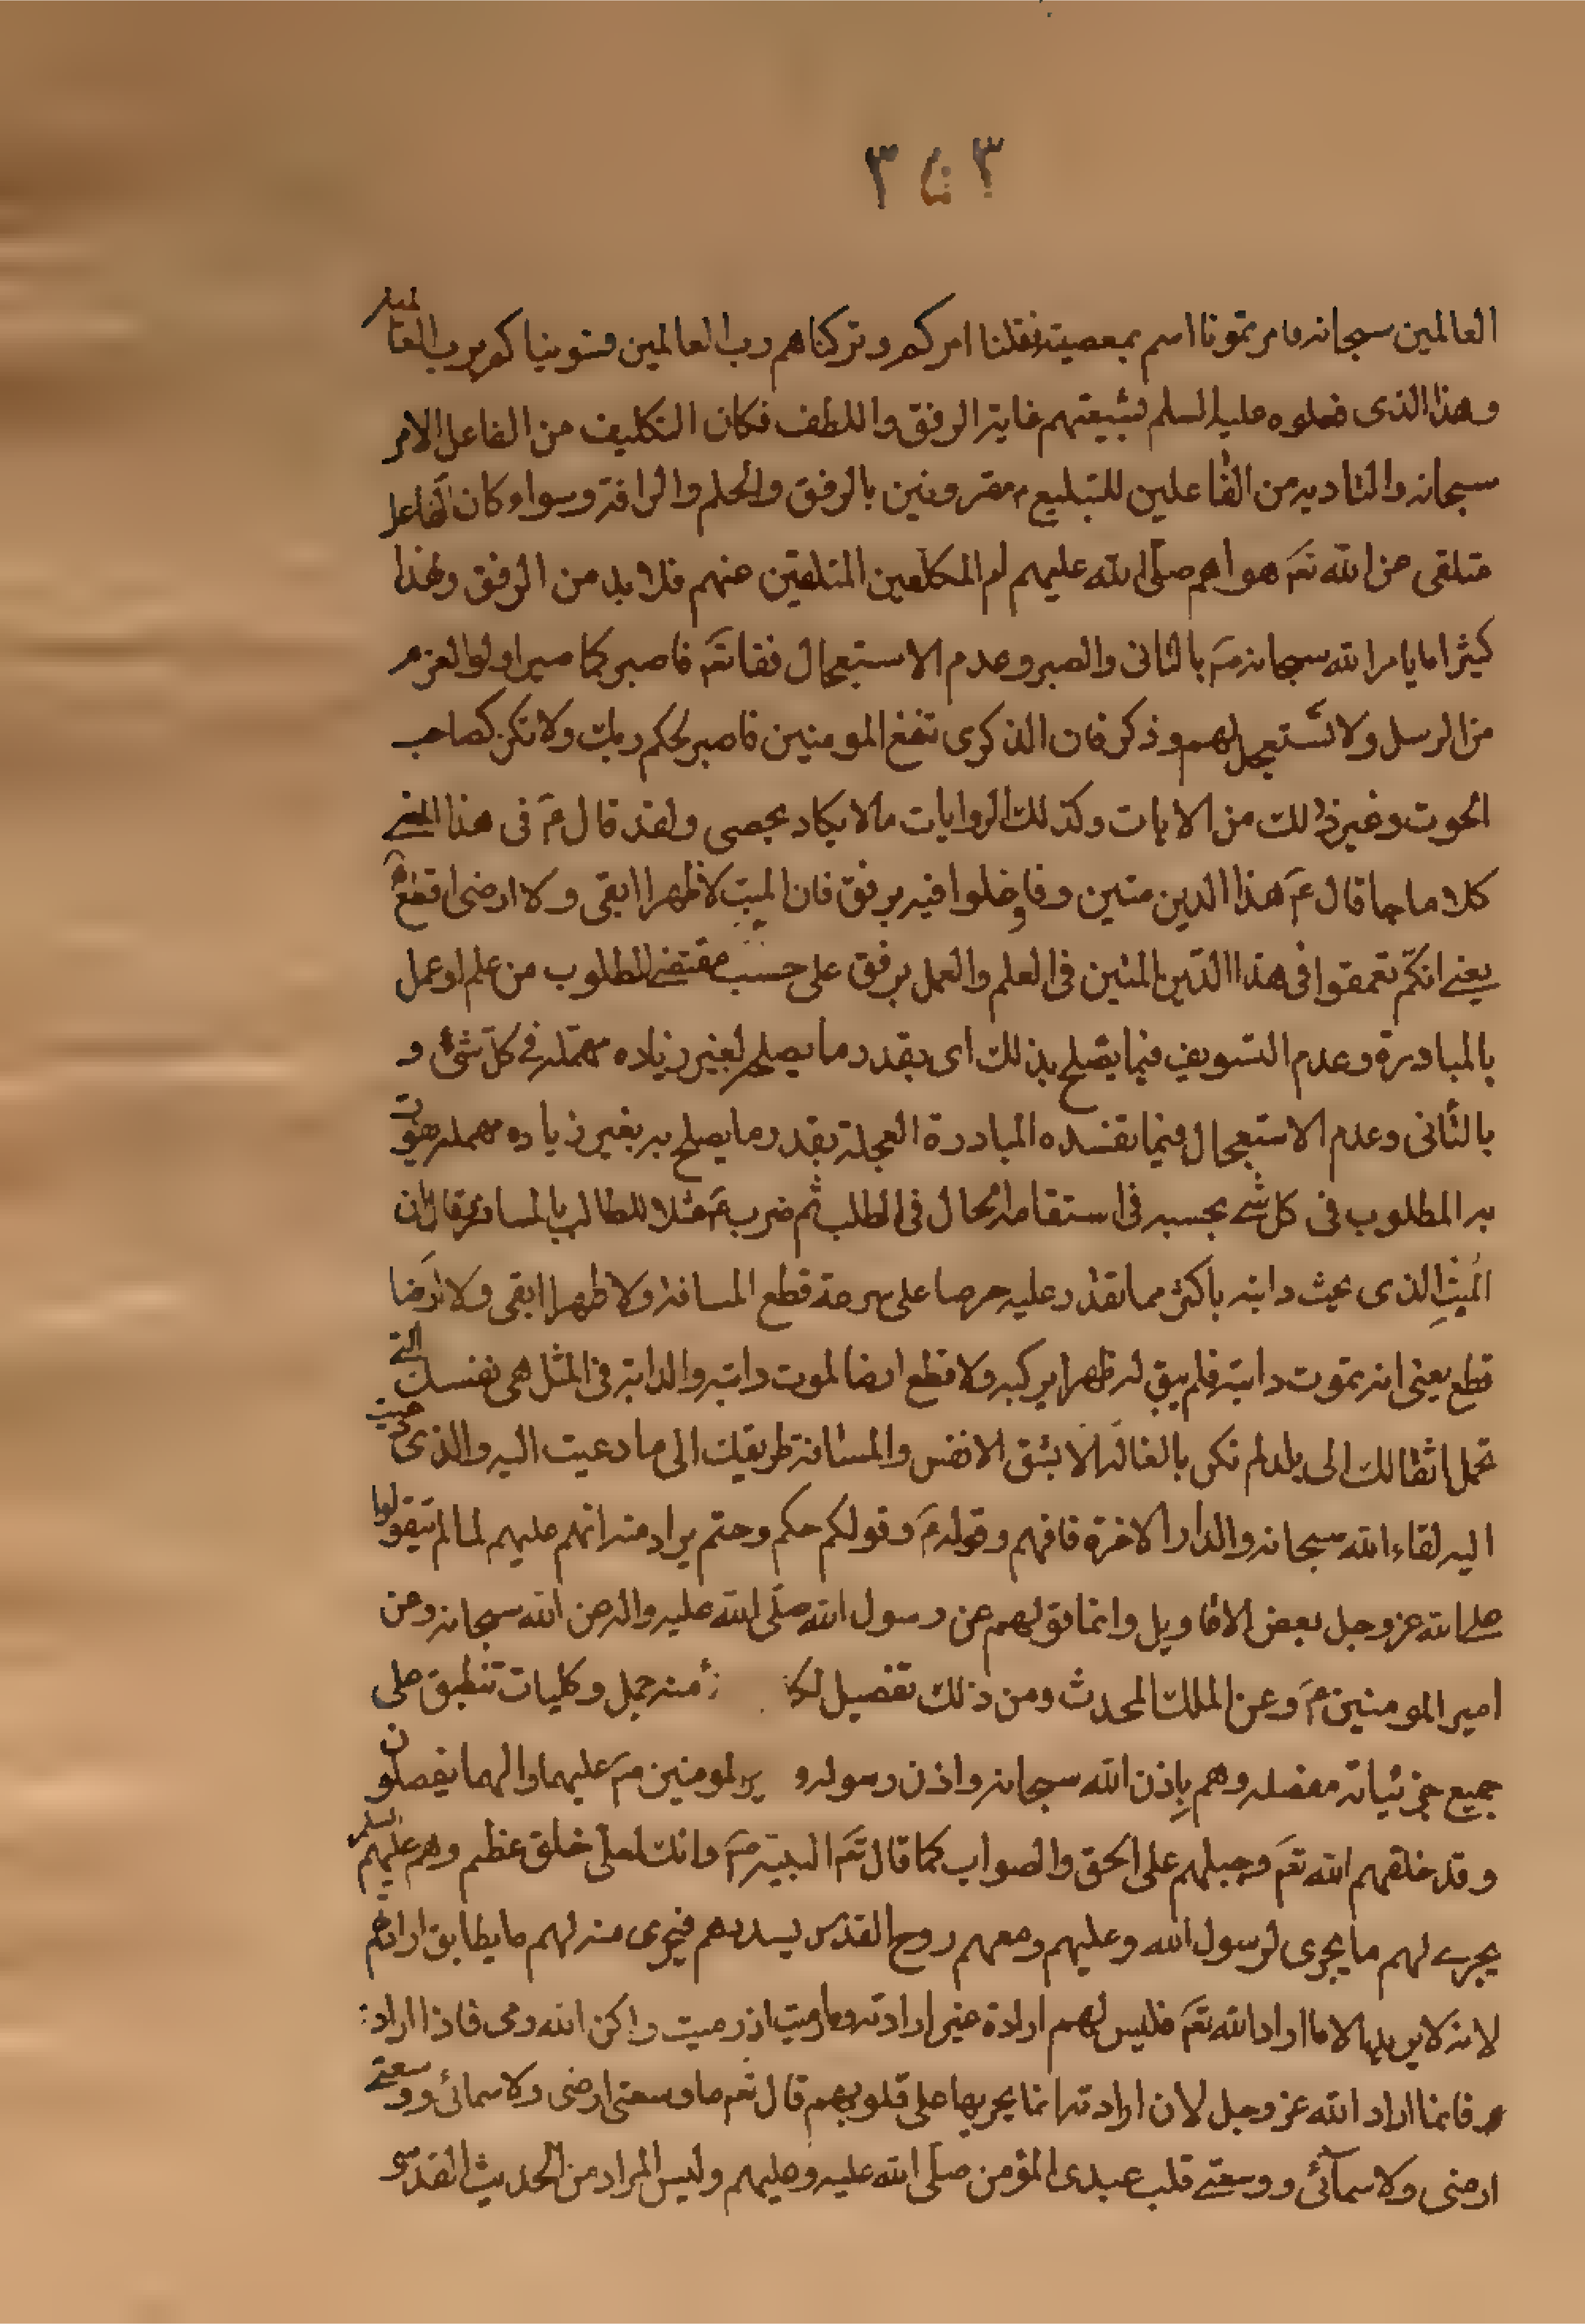 العالمين سبحانه فامرتمونا اسم بمعصيته فقلنا امركم وتركناهم رب العالمين فسوينا كم برب العا لمين
وهذا الذى فعلوه عليه السلم بشيعتهم غاية الرفق واللطف فكان التكليف من الفاعل الامر
سبحانه والتاديه من الفاعلين للتبليغ مقرونين بالرفق والحلم والرافة وسواء كان الفاعل
متلقى عن الله تعَ هو اهم صلّى الله عليهم ام المكلفين المتلقين عنهم فلا بد من الرفق ولهذا
كثيرا ما يامر الله سبحانه بالتانى والصبر وعدم الاستعجال فقا تعَ فاصبر كما صبر اولوا العزم
من الرسل ولا تستعجل لهم وذكر فان الذكرى تنفع المومنين فاصبر لحكم ربك ولا تكن كصاحب
الحوت وغير ذلك من الايات وكذلك الروايات ما لا يكاد يحصى ولقد قال فى هذا المعنى
كلاما جامعا قال هذا الدين متين وفاوغلوا فيه برفق فان المبت لا ظهرا ابقى ولا ارضى اقطع
يعنى انكم تعمقوا فى هذا الدّين المتين فى العلم والعمل برفق على حسب مقتضى المطلوب من علم او عمل
بالمبادرة وعدم التسويف فيما يصلح بذلك اى بقدر ما يصلح لغير زياده مهمله فى كلّ شئ و
بالتّانى وعدم الاستعجال فيما تفسده المبادرة العجلة بقدر ما يصلح به بغير زياده مهمله يفوت
به المطلوب فى كل شى بحسبه فى استقامه الحال فى الطلب ثم ضرب مثلا للطالب بالمسافر فقال ان
المبتّ الذى يحث دابته باكثر مما تقدر عليه حرصا على سرعة قطع المسافة ولا ظهرا ابقى ولا ارضا
قطع يعنى انه تموت دابته فلم يبق له ظهرا يركبه ولا قطع ارضا لموت دابته والدابة فى المثل هى نفسك التى
تحمل اثقالك الى بلد لم تكن بالغا له الا بشق الانفس والمسافة طريقك الى ما دعيت اليه والذى دعيت
اليه لقاء الله سبحانه والدار الاخرة فافهم وقوله وقولكم حكم وحتم يراد منه انهم عليهم لما لم يتقولوا
على الله عز وجل بعض الاقاويل وانما قولهم عن رسول الله صلّى الله عليه واله عن الله سبحانه وعن
امير المومنين وعن الملك المحدث ومن ذلك تفصيل لكل منه جمل وكليات تنطبق على
جميع جزئياته مفصله وهم بِاذن الله سبحانه واذن رسوله و ير المومنين عليهما والهما يفصلون
وقد خلقهم الله تعَ وجبلهم على الحق والصواب كما قال تعَ لنبيه وانك لعلى خلق عظيم وهم عليهم السلم
يجرى لهم ما يجرى لرسول الله وعليهم ومعهم روح القدس يسددهم فيجرى منه لهم ما يطابق ارادتهم
لانه لا يريد بها الا ما اراد الله تعَ فليس لهم ارادة غير ارادته وما رميت اذ رميت ولكن الله رمى فاذا اراد
فانما اراد الله عز وجل لان ارادته انما يجريها على قلوبهم قال تعَ ما وسعنى ارضى ولا سمائى ووسعنى
ارضى ولا سمآئى ووسعنى قلب عبدى المؤمن صلّى الله عليه وعليهم وليس المراد من الحديث القدسى